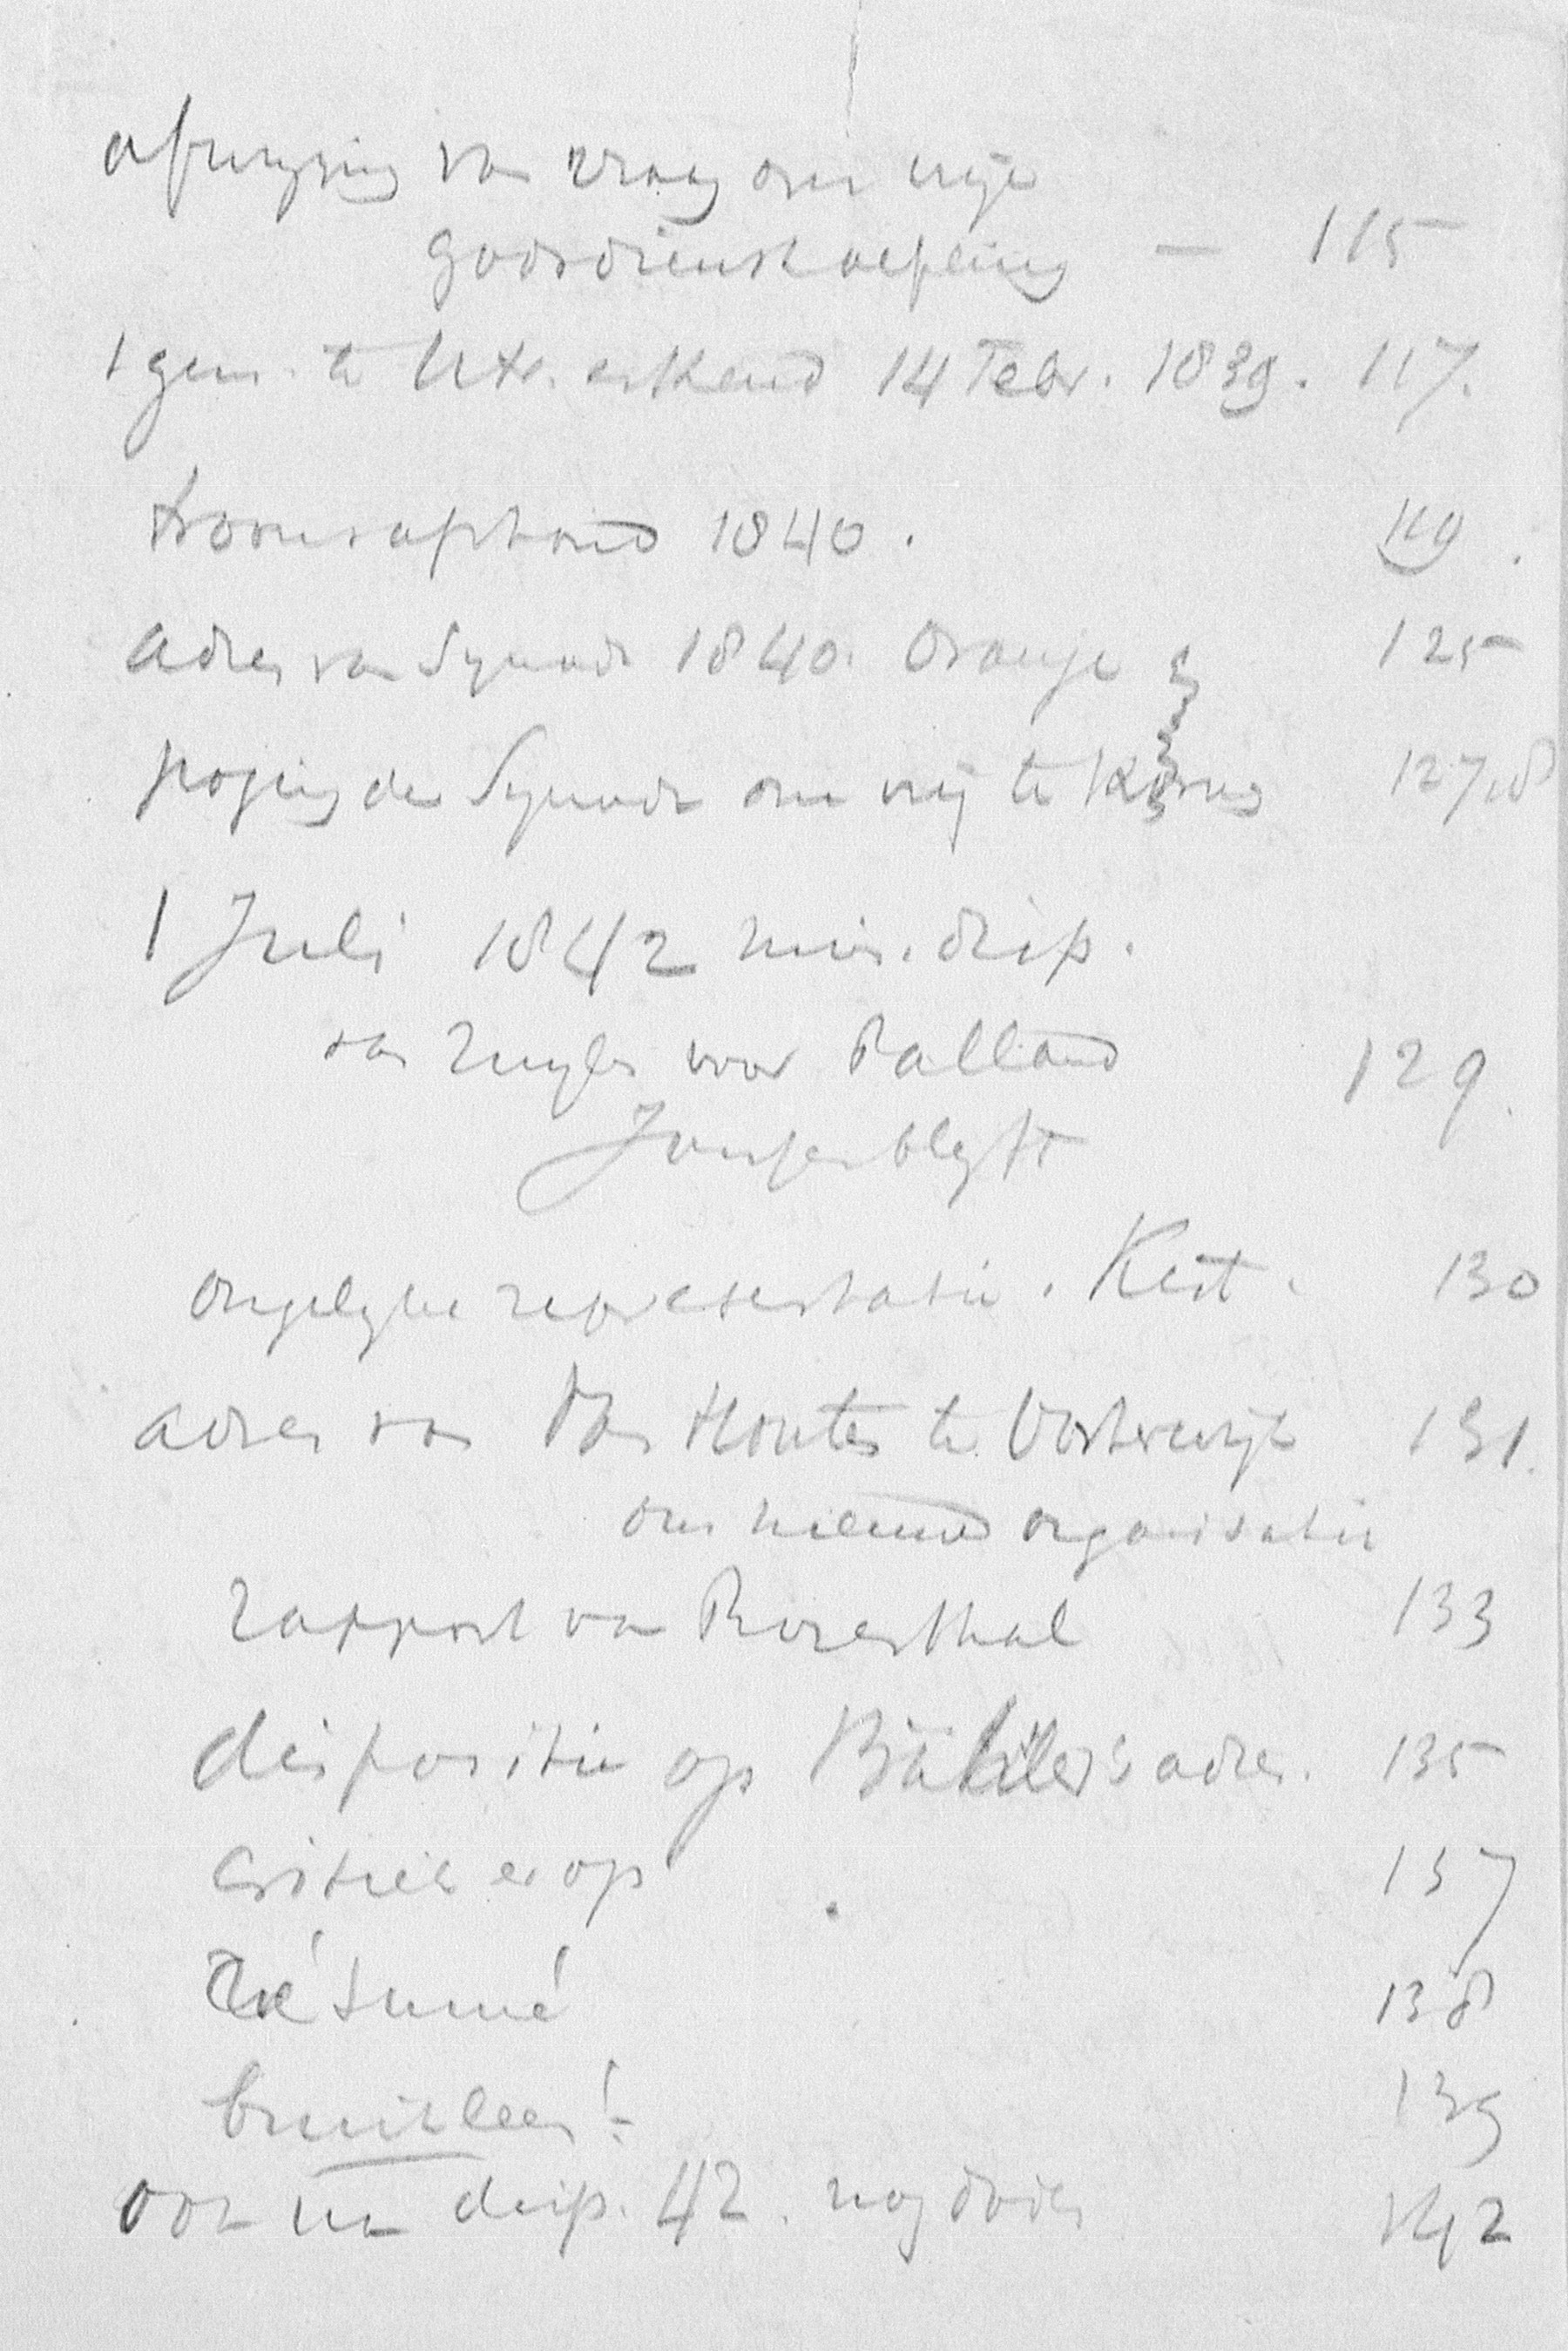 afwijzing van vraag om vrije
godsdienstoefening — 115
1 gem. te Utr. erkend 14 Febr. 1839. 117.
troonsafstand 1840. 119.
adres van Synode 1840. Oranje 125
poging der Synode om vrij te komen 127,8
1 Juli 1842 min. disp.
van Zuylen voor Palland
129.
Janssen blijft
ongelijke representatie. Kist. 130
adres van Ds Houter te Oosterwijk 131.
om nieuwe organisatie
rapport van Rosenthal 133
dispositie op Bähler's adres. 135
critiek er op 137
résumé 138
bruikleen! 139
ook na disp. 42. nog 142